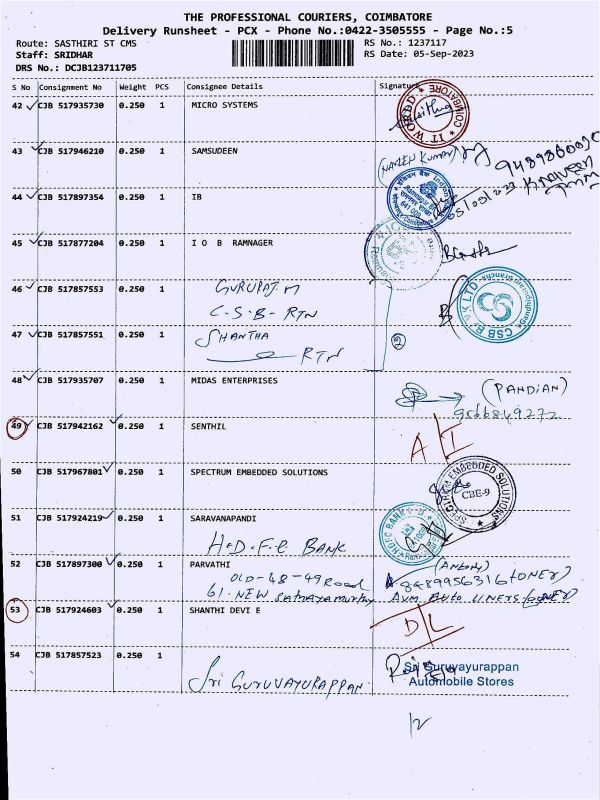 THE PROFESSIONAL COURIERS, COIMBATORE
Delivery Runsheet - PCX - Phone No.:0422-3505555 - Page No.:5
Route: SASTHIRI ST CMS RS No.: 1237117
Staff: SRIDHAR RS Date: 05-Sep-2023
DRS No.: DCJB123711705
S No Consignment No Weight PCS Consignee Details Signature
42 CJB 517935730 0.250 1 MICRO SYSTEMS
IT WORLD COIMBATORE
43 CJB 517946210 0.250 1 SAMSUDEEN (NAVEEN KUMAR)
44 CJB 517897354 0.250 1 IB
641 009
05/09/2023
45 CJB 517877204 0.250 1 I O B RAMNAGER
46 CJB 517857553 0.250 1 GURURAJ.M
C-S-B- RTN
CSB Bank LTD
47 CJB 517857551 0.250 1 SHANTHA
RTN
2
48 CJB 517935707 0.250 1 MIDAS ENTERPRISES (PANDIAN)
9566849272
49 CJB 517942162 0.250 1 SENTHIL
A I
50 CJB 517967801 0.250 1 SPECTRUM EMBEDDED SOLUTIONS
SPECTRUM EMBEDDED SOLUTIONS
CBE-9
51 CJB 517924219 0.250 1 SARAVANAPANDI
HDFC BANK
H.D.F.C BANK
52 CJB 517897300 0.250 1 PARVATHI (Antony)
OLD-48-49 Road 8489956316
61. NEW Sathyamurthy AVM Auto LINERS (OWNER)
53 CJB 517924603 0.250 1 SHANTHI DEVI E
D/L
54 CJB 517857523 0.250 1
Sri GURUVAYURAPPAN
Sri Guruvayurappan
Automobile Stores
12